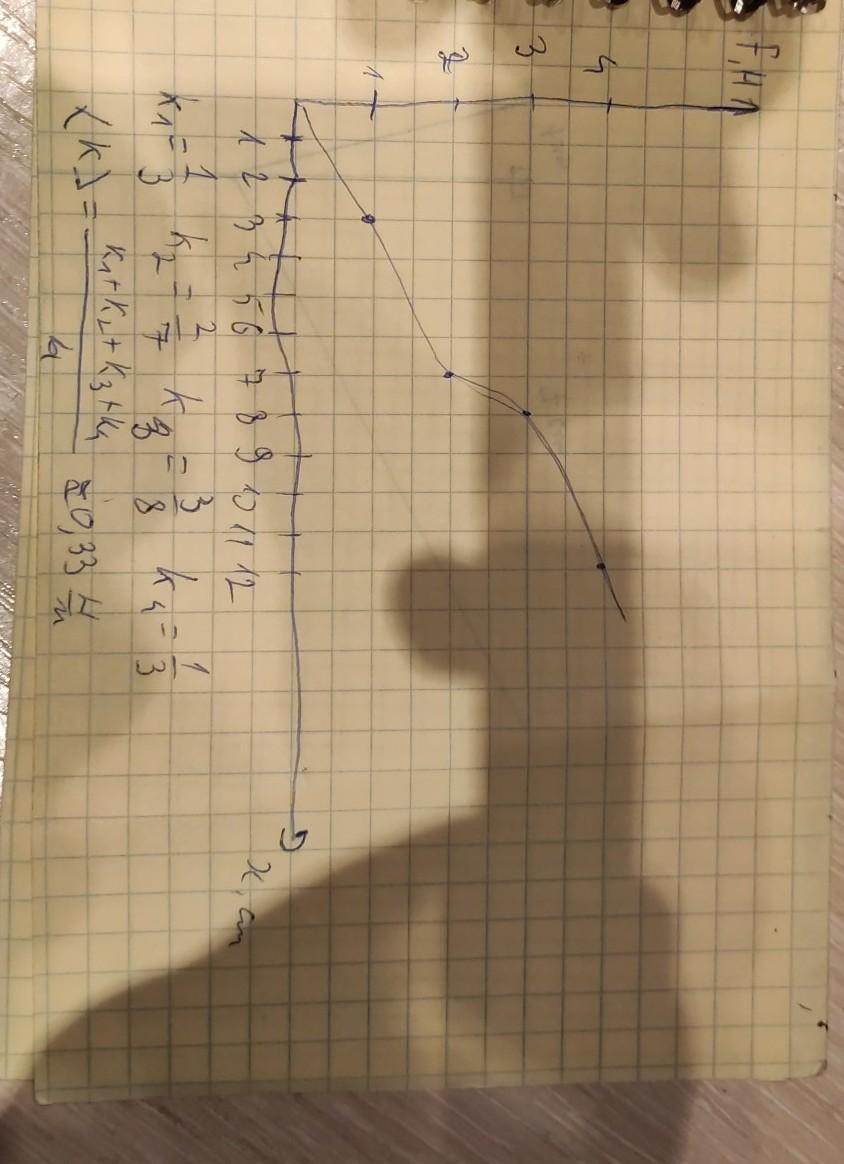 F,Н
4
3
2
1
1 2 3 4 5 6 7 8 9 10 11 12
x, см
k₁ = 1/3 k₂ = 2/7 k₃ = 3/8 k₄ = 1/3
⟨k⟩ = (k₁+k₂+k₃+k₄)/4 ≈ 0,33 Н/м